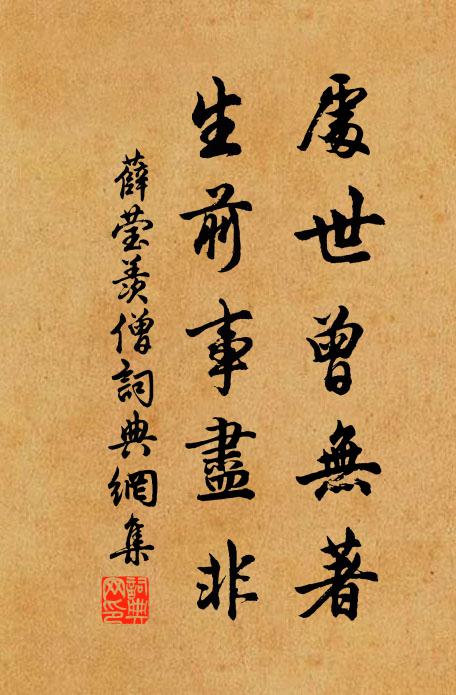 處世曾無著
生前事盡非
薛瑩羨僧詞典網集
詞典
网印